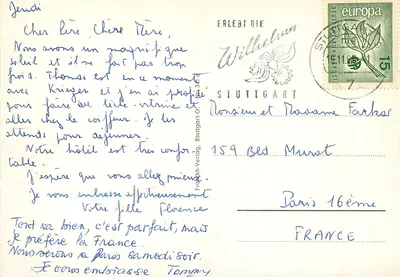 Jeudi
Cher Père, Chère Mère,
Nous avons un magnifique
soleil et il ne fait pas trop
froid. Thomas est en ce moment
avec Krieger et j'en ai profité
pour faire du lèche-vitrine et
aller chez le coiffeur. Je les
attends pour déjeuner.
Notre hôtel est très confor-
table.
J'espère que vous allez mieux.
Je vous embrasse affectueusement
Votre fille Florence
Tout va bien, c'est parfait, mais
je préfère la France.
Nous serons à Paris samedi soir.
Je vous embrasse Tommy
ERLEBT DIE
Wilhelma
STUTTGART
europa
15
7
Monsieur et Madame Farkas
159 Bld Murat
Paris 16ème
FRANCE